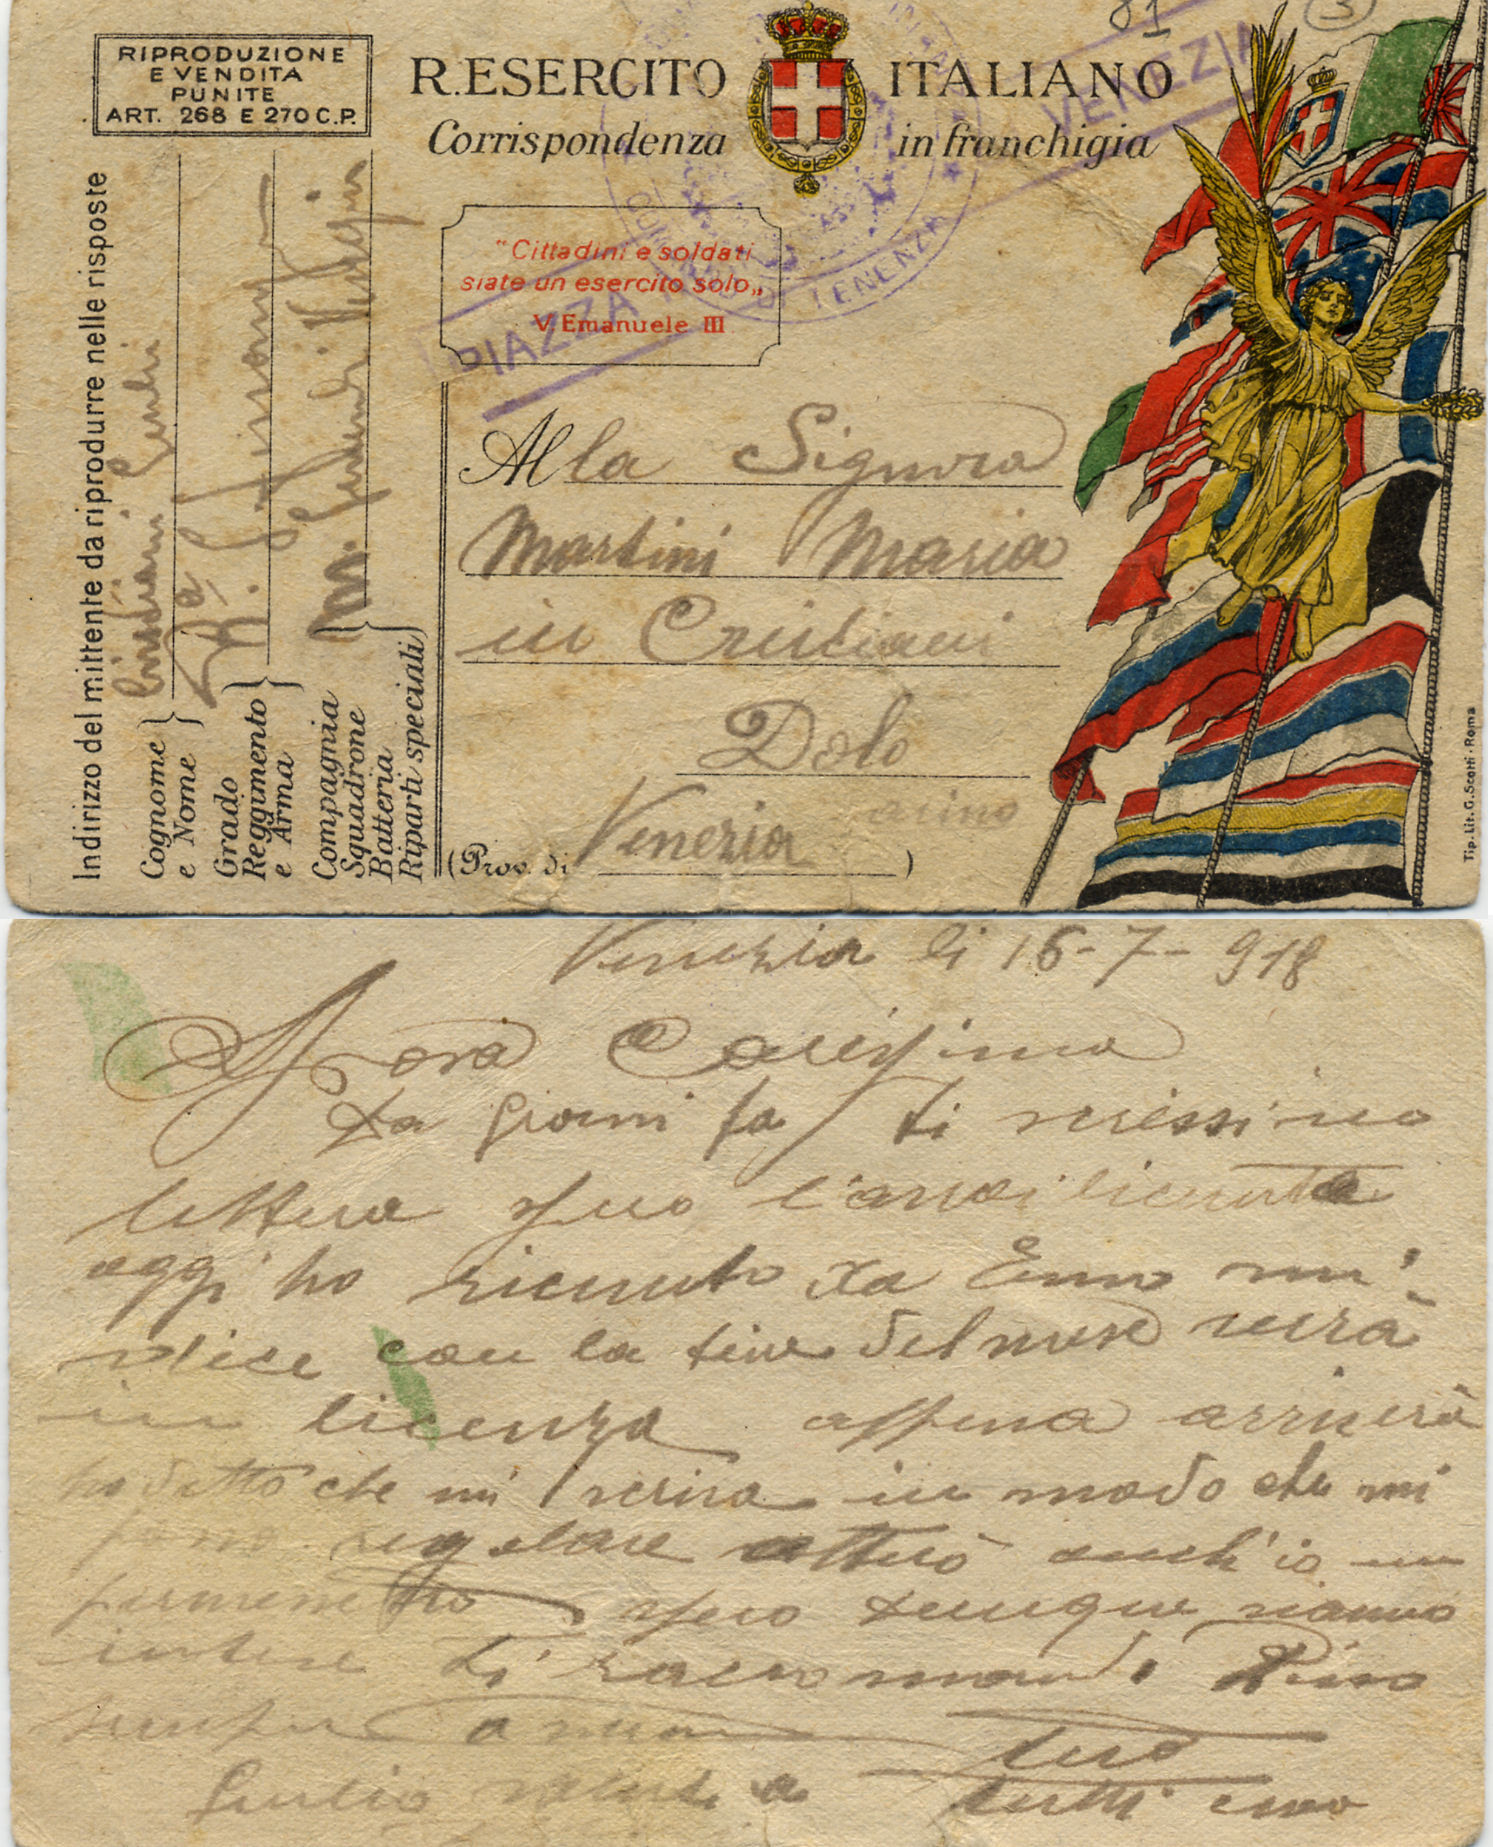 81 3
RIPRODUZIONE
E VENDITA
PUNITE
ART. 268 E 270 C.P.
R. ESERCITO ITALIANO
Corrispondenza in franchigia
"Cittadini e soldati
siate un esercito solo„
V. Emanuele III
PIAZZA VENEZIA
COMANDO DI TENENZA
Indirizzo del mittente da riprodurre nelle risposte
Cognome
e Nome
Grado
Reggimento
e Arma
Compagnia
Squadrone
Batteria
Riparti speciali
Alla Signora
Martini Maria
in Cristiani
Dolo
arino
(Prov. di Venezia)
Tip. Lit. G. Scotti - Roma
Venezia li 16-7-918
Carissima
Da giorni fa ti scrissi una
lettera spero l'avrai ricevuta
oggi ho ricevuto da Enno mi
dice con la fine del mese verrà
in licenza appena arriverà
ho detto che mi scriva in modo che mi
regolare anch'io un
spero dunque siamo
intese ti raccomando
sempre tuo
Giulio saluti a tutti ciao